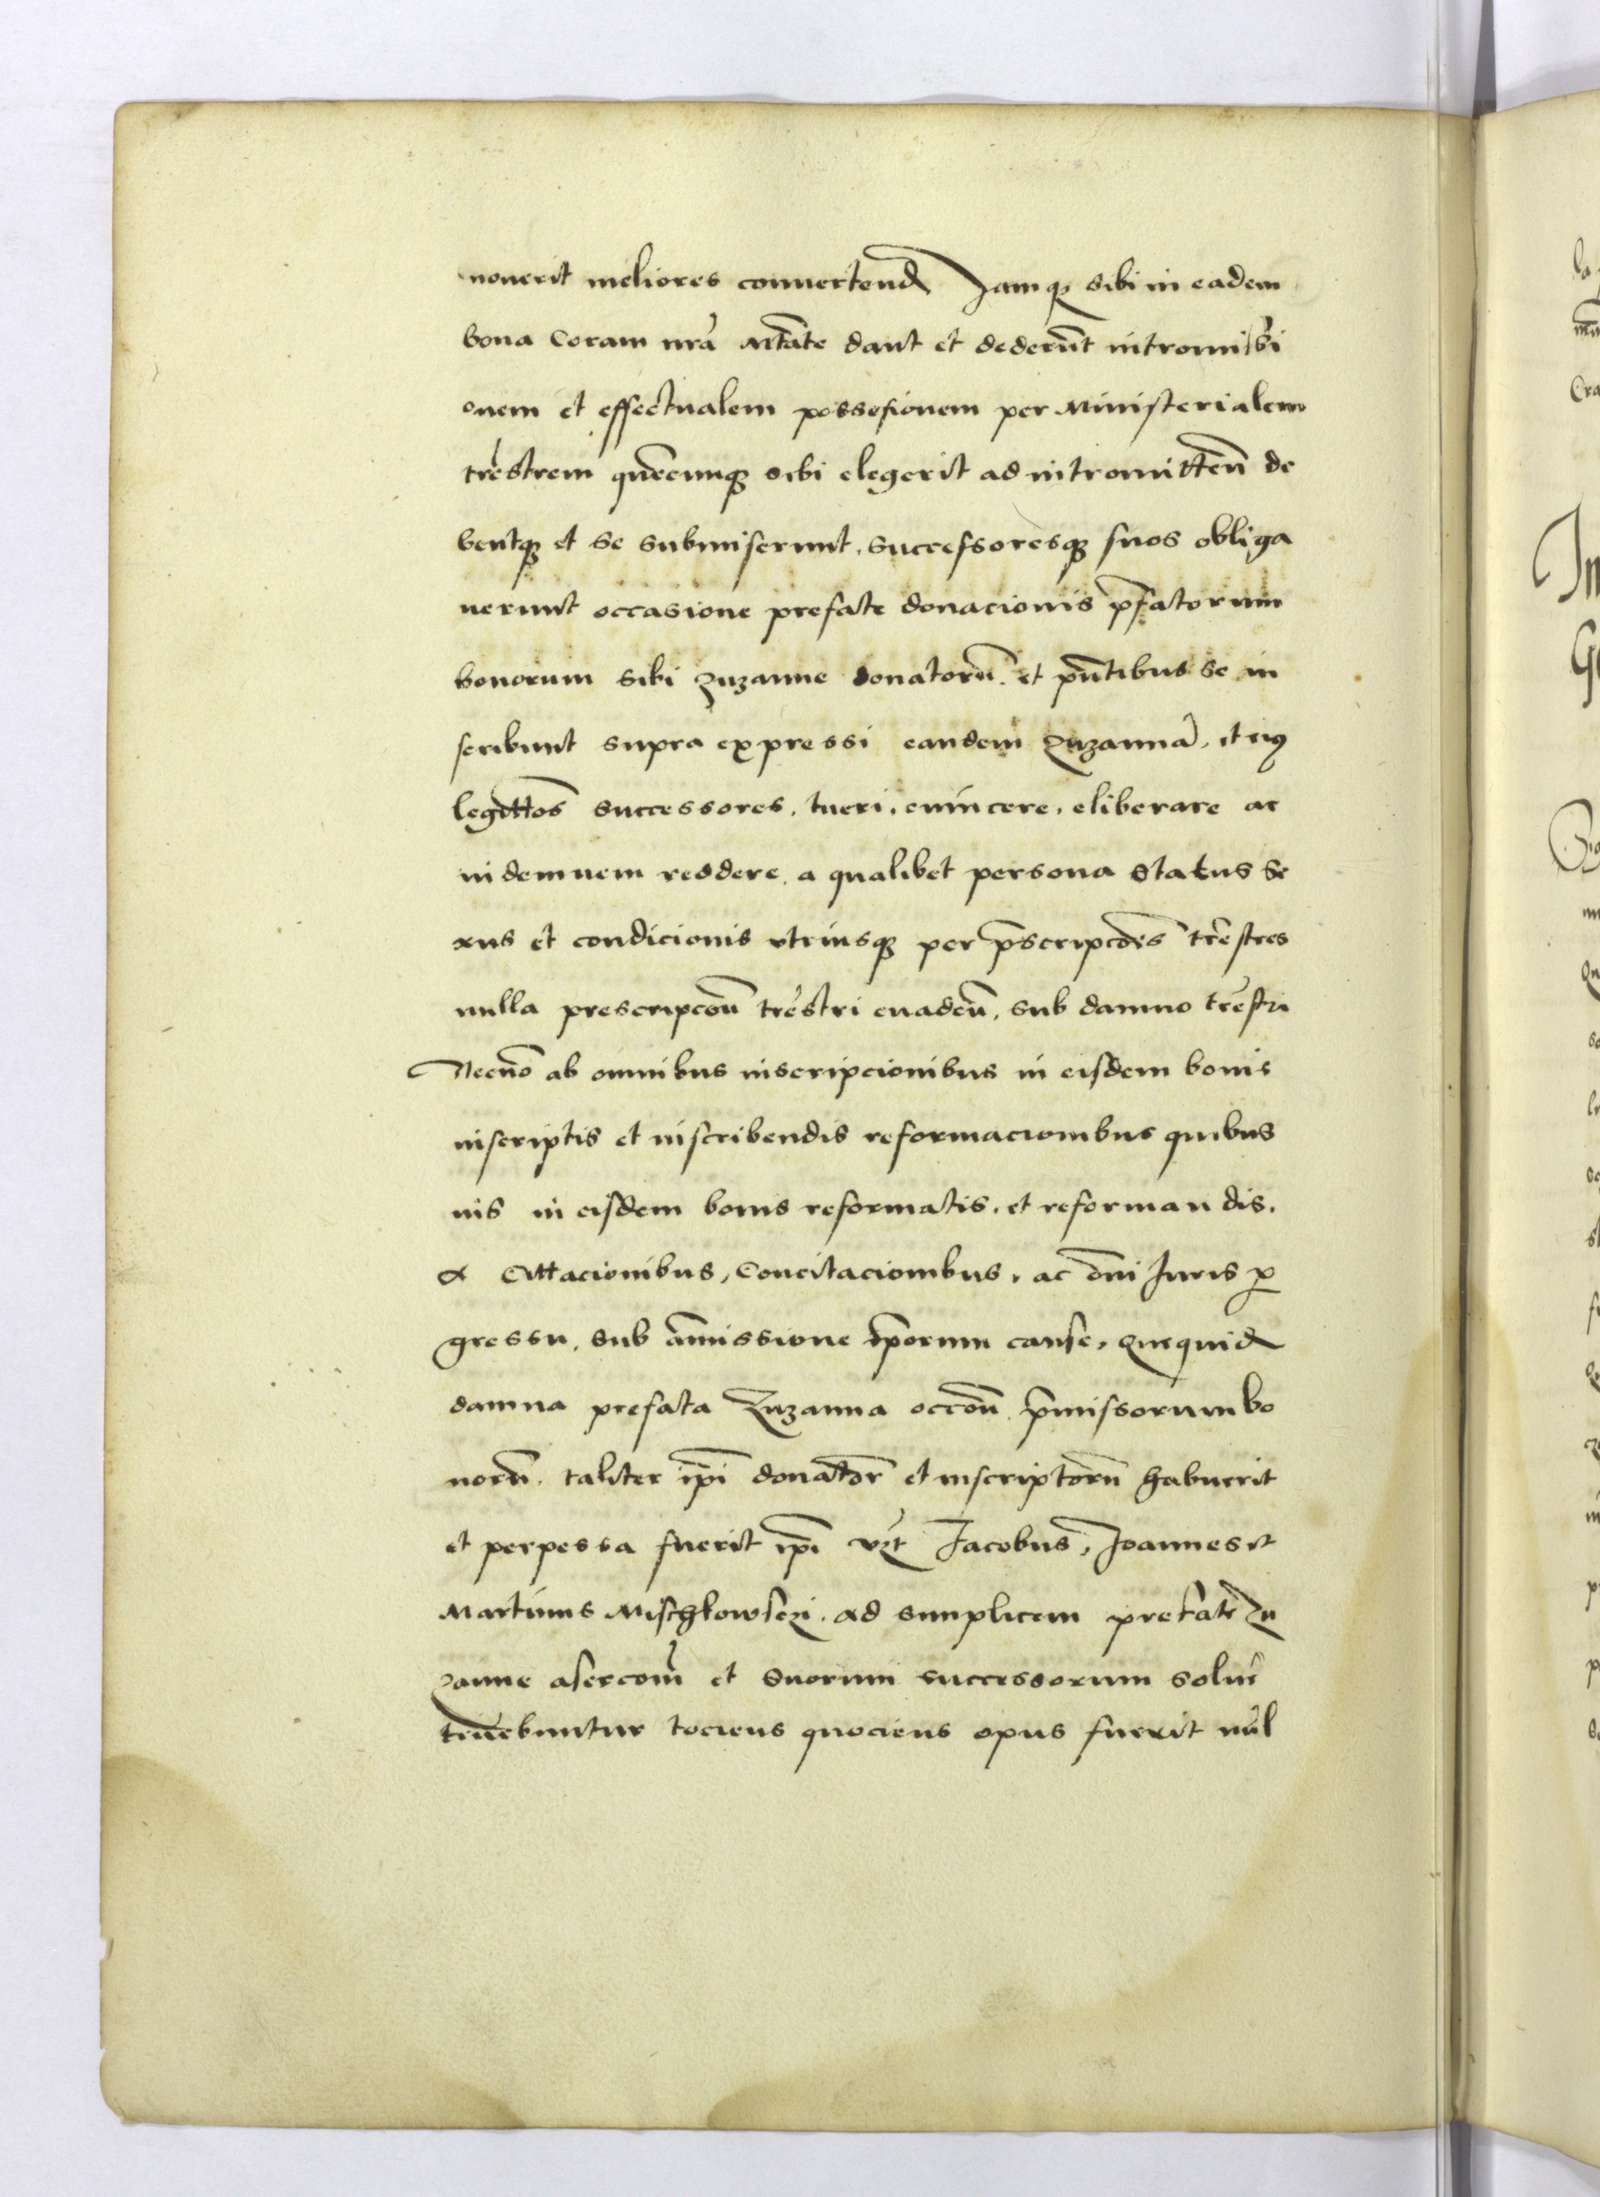 nouerit meliores conuertend Jamq sibi in eadem
bona Coram nrā Mtāte dant et dederūt intromissi
onem et effectualem possesionem per Ministerialem
trēstrem quēcunq sibi elegerit ad intromittēn de
bentq et se submiserunt, successoresq suos obliga
uerunt occasione prefate donacionis p̄fatorum
bonorum sibi zuzanne donatorū. et pn̄tibus se in
scribunt supra expressi eandem zuzannā, et eiq
legittos̄ successores, tueri, euincere, eliberare ac
indemnem reddere, a qualibet persona status se
xus et condicionis vtriusq per p̄scripcōēs trēstres
nulla prescripcōn̄ trēstri euadēn̄, sub damno trēstri
Necnō ab omnibus inscripcionibus in eisdem bonis
inscriptis et inscribendis reformacionibus quibus
uis in eisdem bonis reformatis, et reformandis,
α Cittacionibus, Concitacionibus, ac om̄i Juris p
gressu, sub āmissione ip̄orum cause, Quequid
damna prefata Zuzanna occōn̄ p̄missorum bo
norū, taliter ip̄i donatōr et inscriptōrū habuerit
et perpessa fuerit ip̄i vz̄t Jacobus, Joannes et
Martinus Mischkowsczi, ad simplicem prefate Zu
zanne asercōm̄ et suorum successorum soluē
tenēbuntur tociens quociens opus fuerit nūl